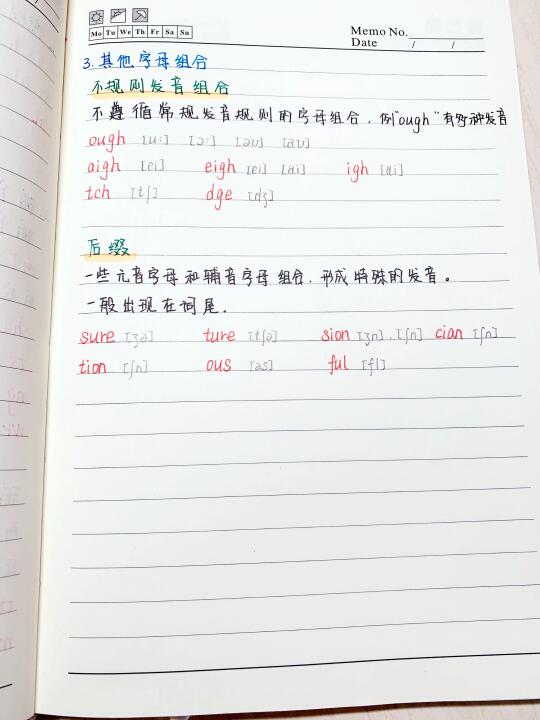 Mo Tu We Th Fr Sa Su
Memo No.
Date / /
3. 其他字母组合
不规则发音组合
不遵循常规发音规则的字母组合，例"ough"有好种发音
ough [u:] [ɔ:] [əʊ] [aʊ]
aigh [ei] eigh [ei] [ai] igh [ai]
tch [tʃ] dge [dʒ]
后缀
一些元音字母和辅音字母组合，形成特殊的发音。
一般出现在词尾.
sure [ʒə] ture [tʃə] sion [ʒn] . [ʃn] cian [ʃn]
tion [ʃn] ous [əs] ful [fl]